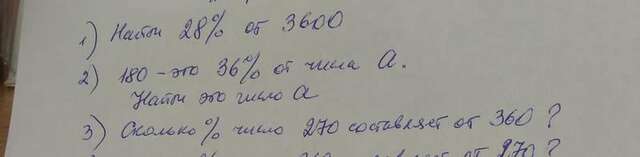 1) Найти 28% от 3600
2) 180 - это 36% от числа a.
Найти это число a
3) Сколько % число 270 составляет от 360?
составляет от 270?